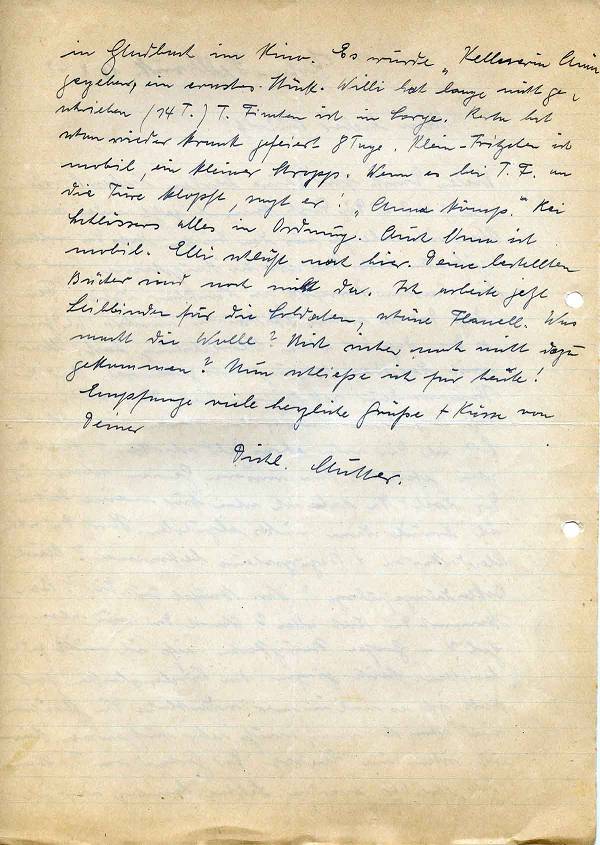 in Gladbach im Kino. Es wurde „Kellnerin Anna
gegeben, ein ernstes Stück. Willi hat lange nicht ge-
schrieben (14 T.) T. Finchen ist in Sorge. hat
schon wieder krank gefeiert 8 Tage. Klein-Fritzchen ist
mobil, ein kleiner Stropp. Wenn es bei T. F. an
die Türe klopft, sagt er: „Anna
Schlössers alles in Ordnung. Auch Oma ist
mobil. Elli schläft noch hier. Deine bestellten
Bücher sind noch nicht da. Ich arbeite jetzt
Leibbinden für die Soldaten, schöne Flanell. Was
macht die Wolle? Bist sicher noch nicht dazu
gekommen? Nun schließe ich für heute!
Empfange viele herzliche Grüße + Küsse von
Deiner
Dichl. Mutter.